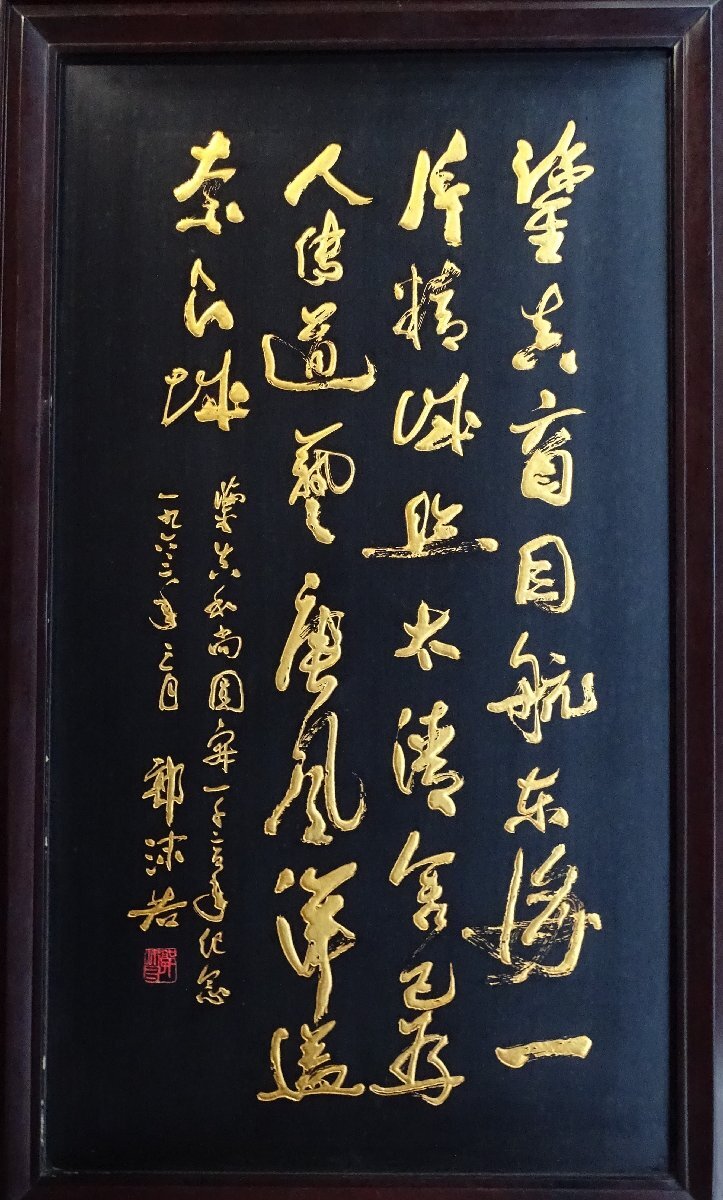 鑒真盲目航东海一
片精诚照太清舍己為
人傳道藝唐风洋溢
奈良城
鑒真和尚圓寂一千二百年纪念
一九六三年三月 郭沫若